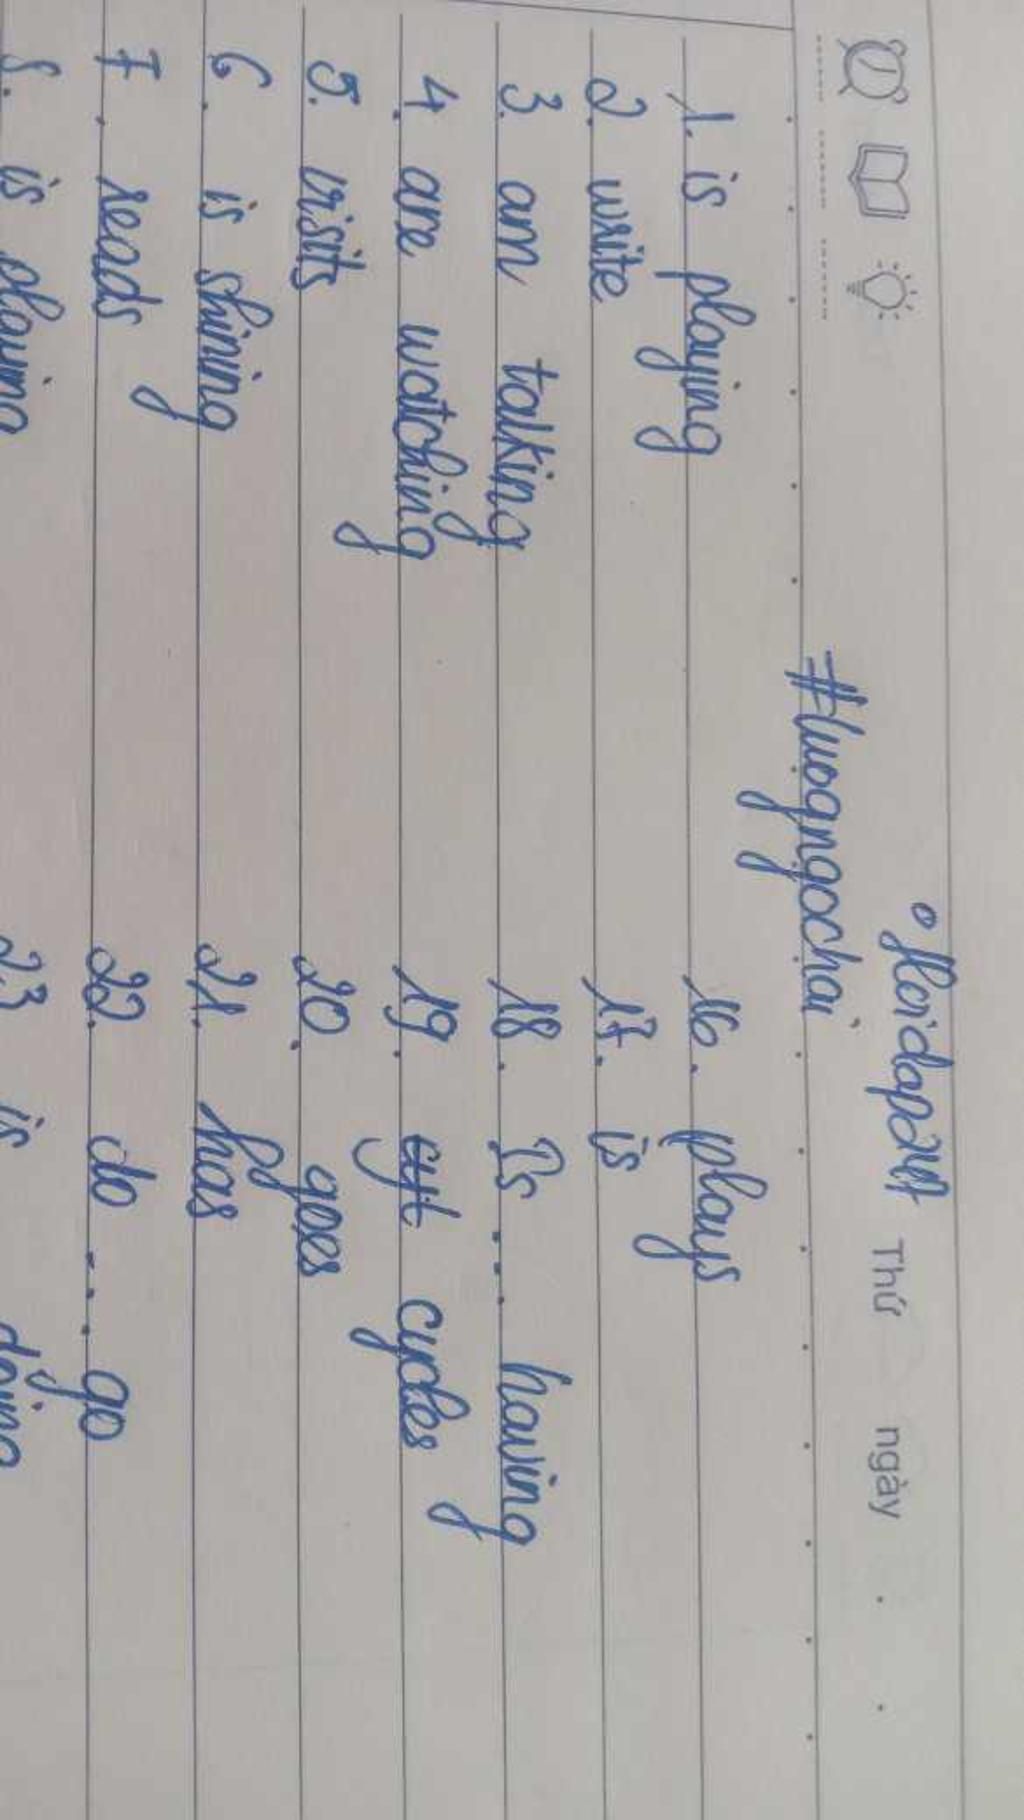 • Hoidap247 Thứ ngày
#luogngochai
1. is playing 16. plays
2. write 17. is
3. am talking 18. Is .... having
4. are watching 19. cyt cycles
5. visits 20. goes
6. is shining 21. has
7. reads 22. do .... go
8. is playing 23 is doing